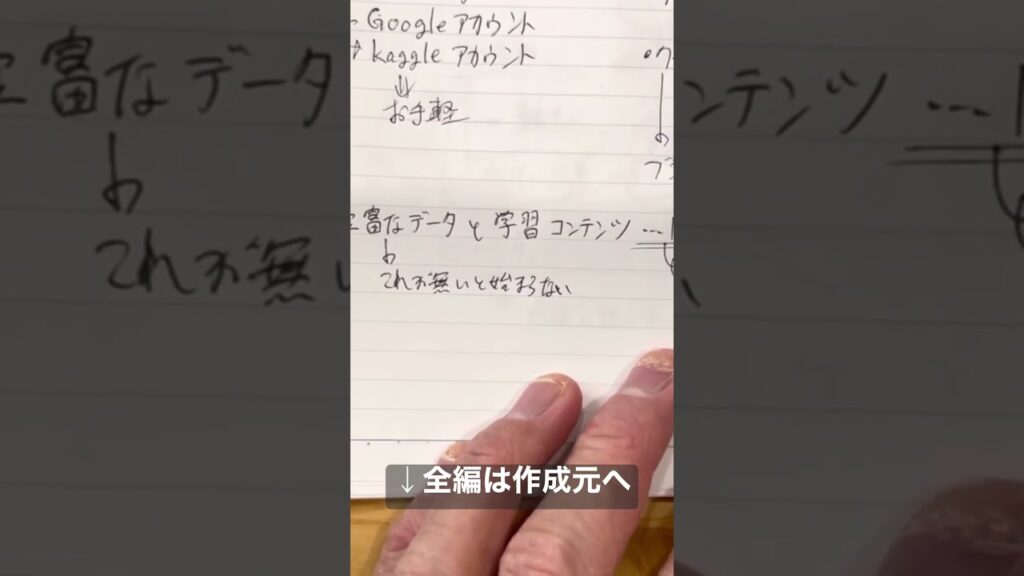 Googleアカウント
kaggleアカウント
⇓
お手軽
富なデータと学習コンテンツ …
これが無いと始まらない
↓全編は作成元へ
富なデータ
これが無い
ンテンツ …